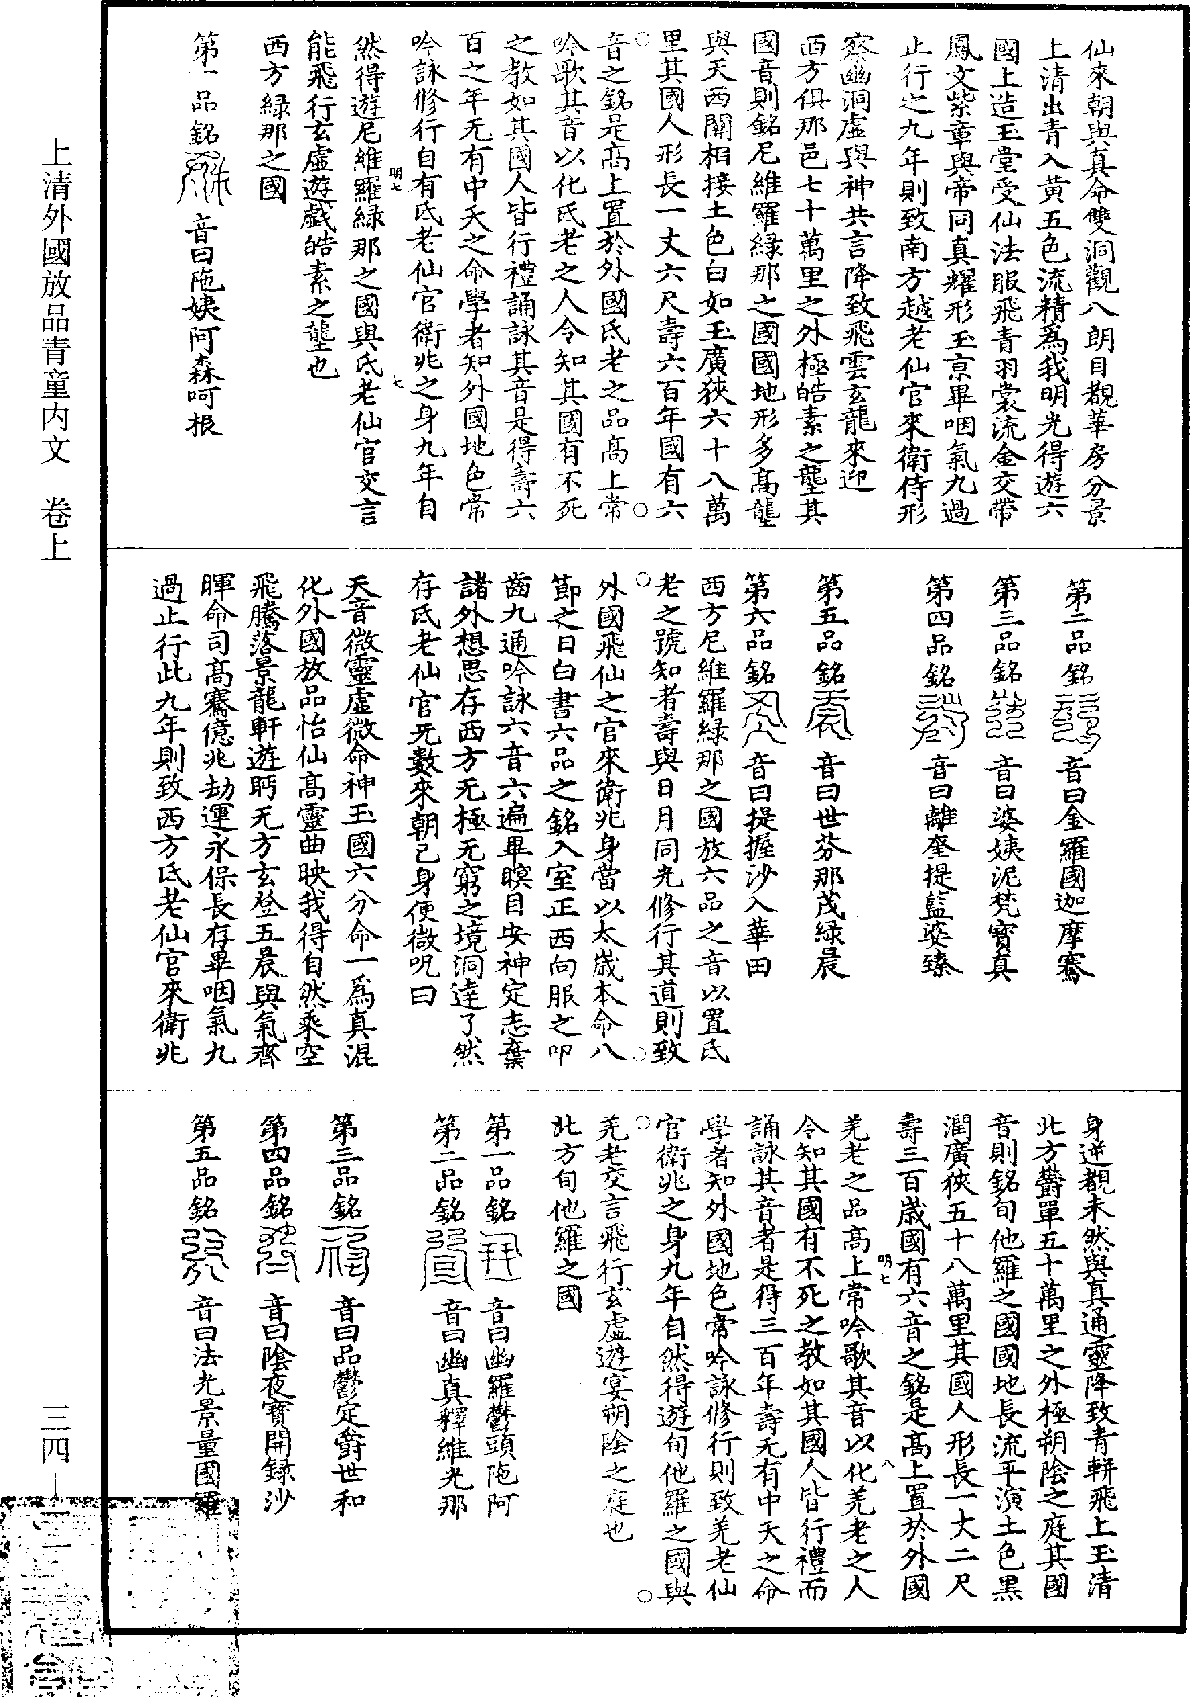 仙來朝與真命雙洞觀八朗目覩華房分景
上清出青入黃五色流精爲我明光得遊六
國上造玉堂受仙法服飛青羽裳流金交帶
鳳文紫章與帝同真耀形玉京畢咽氣九過
止行之九年則致南方越老仙官來衛侍形
察幽洞虛與神共言降致飛雲玄龍來迎
西方俱那邑七十萬里之外極皓素之壟其
國音則銘尼維羅緑那之國國地形多高壟
與天西關相接土色白如玉廣狹六十八萬
里其國人形長一丈六尺壽六百年國有六
音之銘是高上置於外國氐老之品高上常
吟歌其音以化氐老之人令知其國有不死
之教如其國人皆行禮誦詠其音是得壽六
百之年无有中夭之命學者知外國地色常
吟詠修行自有氐老仙官衛兆之身九年自
然得遊尼維羅緑那之國與氐老仙官交言
能飛行玄虛遊戲皓素之壟也
西方緑那之國
第一品銘 音曰陁姨阿森呵根
明七
七
第二品銘 音曰金羅國迦摩騫
第三品銘 音曰婆姨泥梵寶真
第四品銘 音曰離奎提藍婆臻
第五品銘 音曰世芬那茂緑晨
第六品銘 音曰提握沙入華田
西方尼維羅緑那之國放六品之音以置氐
老之號知者壽與日月同光修行其道則致
外國飛仙之官來衛兆身當以太歲本命八
節之日白書六品之銘入室正西向服之叩
齒九通吟詠六音六遍畢瞑目安神定志棄
諸外想思存西方无極无窮之境洞達了然
存氐老仙官无數來朝己身便微呪曰
天音微靈虛微命神玉國六分命一爲真混
化外國放品怡仙高靈曲映我得自然乘空
飛騰落景龍軒遊眄无方玄登五晨與氣齊
暉命司高騫億兆劫運永保長存畢咽氣九
過止行此九年則致西方氐老仙官來衛兆
身逆覩未然與真通靈降致青軿飛上玉清
北方欝單五十萬里之外極朔陰之庭其國
音則銘旬他羅之國國地長流平演土色黑
潤廣狹五十八萬里其國人形長一丈二尺
壽三百歲國有六音之銘是高上置於外國
羌老之品高上常吟歌其音以化羌老之人
令知其國有不死之教如其國人皆行禮而
誦詠其音者是得三百年壽无有中夭之命
學者知外國地色常吟詠修行則致羌老仙
官衛兆之身九年自然得遊旬他羅之國與
羌老交言飛行玄虛遊宴朔陰之庭也
北方旬他羅之國
第一品銘 音曰幽羅欝頭陁阿
第二品銘 音曰幽真釋維光那
第三品銘 音曰品鬱定爵世和
第四品銘 音曰陰夜寶開録沙
第五品銘 音曰法光景量國羅
明七
八
上清外國放品青童内文 卷上
三四—一二